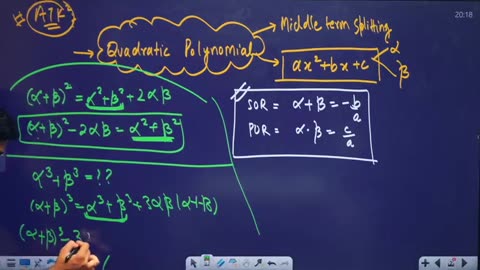 20:18
* ATK
Quadratic Polynomial
Middle term splitting
ax²+bx+c
α
β
(α+β)² = α²+β²+2αβ
(α+β)²-2αβ = α²+β²
SOR = α+β = -b/a
POR = α·β = c/a
α³+β³ = ??
(α+β)³ = α³+β³+3αβ(α+β)
(α+β)³-3